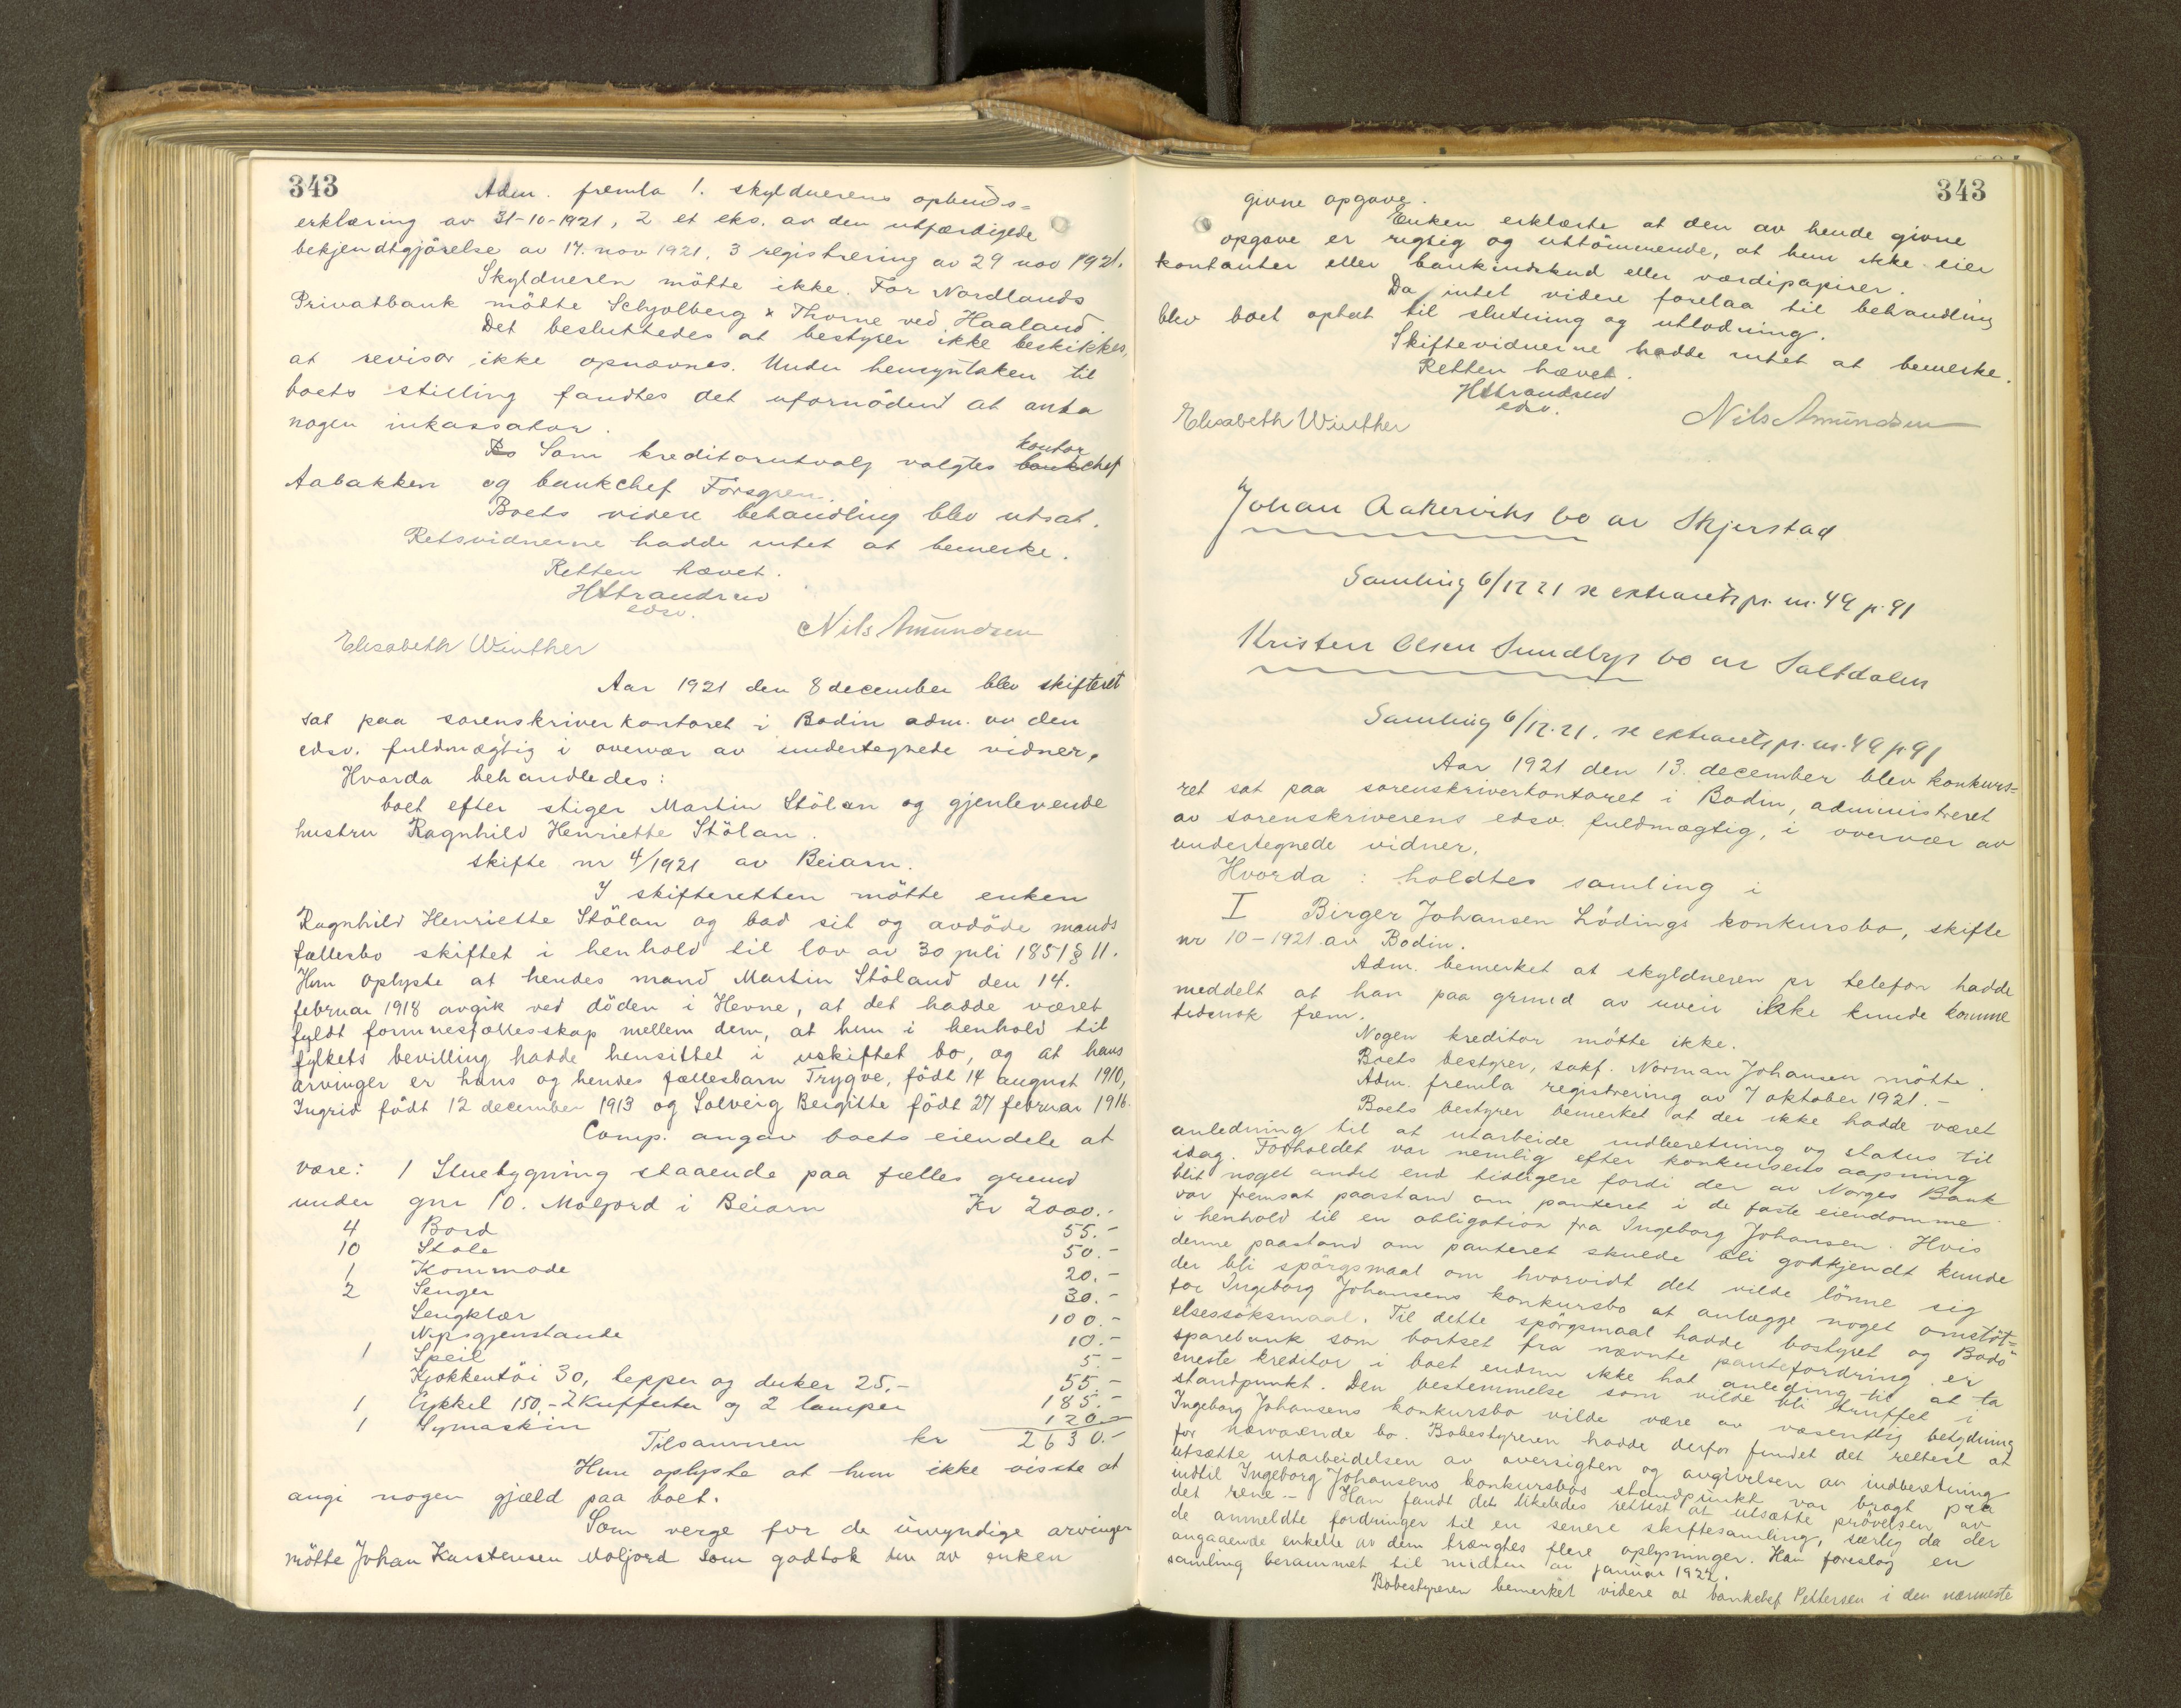 343
Adm. fremla 1. skyldnerens opbuds=
erklæring av 31-10-1921, 2 et eks. av den utfærdigede
bekjendtgjörelse av 17. nov 1921, 3 registrering av 29 nov 1921.
Skyldneren mötte ikke. For Nordlands
Privatbank mötte Schjolberg & Thorne ved Haaland.
Det besluttedes at bestyrer ikke beskikkes,
at revisor ikke opnævnes. Under hensyntaken til
boets stilling fandtes det ufornödent at anta
nogen inkassator.
Som kreditorutvalg valgtes bankchef kontor
Aabakken og bankchef Forsgren.
Boets videre behandling blev utsat.
Retsvidnerne hadde intet at bemerke.
Retten hævet.
HStrandrud
edsv.
Nils Amundsen
Elisabeth Winther
Aar 1921 den 8 december blev skifteret
sat paa sorenskriverkontoret i Bodin adm. av den
edsv. fuldmægtig i overvær av undertegnede vidner,
Hvorda behandledes:
boet efter stiger Martin Stölan og gjenlevende
hustru Ragnhild Henriette Stölan.
skifte nr 4/1921 av Beiarn.
I skifteretten mötte enken
Ragnhild Henriette Stölan og bad sit og avdöde mands
fællesbo skiftet i henhold til lov av 30 juli 1851 § 11.
Hun oplyste at hendes mand Martin Stöland den 14.
februar 1918 avgik ved döden i Hevne, at det hadde været
fyldt formuesfællesskap mellem dem, at hun i henhold til
fylkets bevilling hadde hensittet i uskiftet bo, og at hans
arvinger er hans og hendes fællesbarn Trygve, födt 14 august 1910,
Ingrid födt 12 december 1913 og Solveig Beigitte födt 27 februar 1916.
Comp. angav boets eiendele at
være: 1 Stuebygning staaende paa fælles grund
under gnr 10. Moljord i Beiarn Kr 2000.-
4 Bord 55.-
10 Stole 50.-
1 Kommode 20.-
2 Senger 30.-
Sengklær 100.-
Nipsgjenstande 10.-
1 Speil 5.-
Kjökkentöi 30, tepper og duker 25,- 55.-
1 Cykkel 150,- 2 Kufferter og 2 lamper 185.-
1 Symaskin 120.-
Tilsammen kr 2630.-
Hun oplyste at hun ikke visste at
angi nogen gjæld paa boet.
Som verge for de umyndige arvinger
mötte Johan Karstensen Moljord som godtok den av enken
343
givne opgave.
Enken erklærte at den av hende givne
opgave er rigtig og uttömmende, at hun ikke eier
kontanter eller bankindskud eller værdipapirer.
Da intet videre forelaa til behandling
blev boet optat til slutning og utlodning.
Skiftevidnerne hadde intet at bemerke.
Retten hævet.
HStrandrud
edsv.
Elisabeth Winther
Nils Amundsen
Johan Aakerviks bo av Skjerstad
Samling 6/12 21 se extraretspr. nr. 49 p. 91
Kristen Olsen Sundbys bo av Saltdalen
Samling 6/12.21. se extraretspr. nr. 49 p. 91
Aar 1921 den 13. december blev konkurs=
ret sat paa sorenskriverkontoret i Bodin, administreret
av sorenskriverens edsv. fuldmægtig, i overvær av
undertegnede vidner.
Hvorda: holdtes samling i
I Birger Johansen Lödings konkursbo, skifte
nr 10-1921 av Bodin.
Adm. bemerket at skyldneren pr telefon hadde
meddelt at han paa grund av uveir ikke kunde komme
tidsnok frem.
Nogen kreditor mötte ikke.
Boets bestyrer, sakf. Norman Johansen mötte.
Adm. fremla registrering av 7 oktober 1921.-
Boets bestyrer bemerket at der ikke hadde været
anledning til at utarbeide indberetning og status til
idag. Forholdet var nemlig efter konkursens aapning
blit noget andet end tidligere fordi der av Norges Bank
var fremsat paastand om panteret i de faste eiendomme
i henhold til en obligation fra Ingeborg Johansen. Hvis
denne paastand om panteret skulde bli godkjendt kunde
der bli spörgsmaal om hvorvidt det vilde lönne sig
for Ingeborg Johansens konkursbo at anlægge noget omstöt=
elsessöksmaal. Til dette spörgsmaal hadde bostyret og Bodö
sparebank som bortset fra nævnte pantefordring er
eneste kreditor i boet endnu ikke hat anledning til at ta
standpunkt. Den bestemmelse som vilde bli truffet i
Ingeborg Johansens konkursbo vilde være av væsentlig betydning
for nærværende bo. Bobestyreren hadde derfor fundet det rettest at
utsætte utarbeidelsen av oversigten og avgivelsen av indberetning
indtil Ingeborg Johansens konkursbos standpunkt var bragt paa
det rene.- Han fandt det likeledes rettest at utsætte prövelsen av
de anmeldte fordringer til en senere skiftesamling, særlig da der
angaaende enkelte av dem trængtes flere oplysninger. Han foreslog en
samling berammet til midten av januar 1922.
Bobestyreren bemerket videre at bankchef Pettersen i den nærmeste